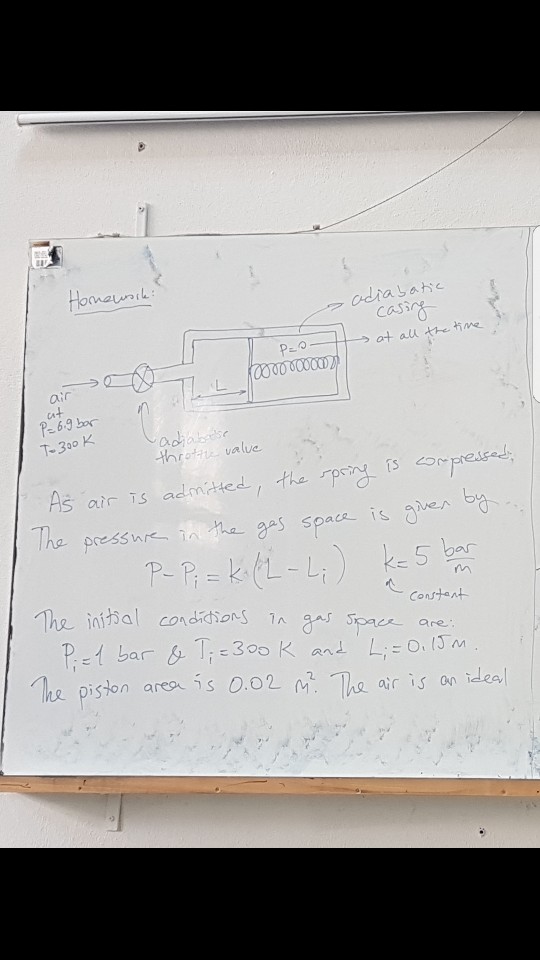 Homework:
adiabatic
casing
P=0
at all the time
L
air
at
P=6.9 bar
T=300 K
adiabatic
throttle value
As air is admitted, the spring is compressed.
The pressure in the gas space is given by
P-Pᵢ = k(L-Lᵢ) k=5 bar/m
constant
The initial conditions in gas space are:
Pᵢ=1 bar & Tᵢ=300 K and Lᵢ=0.15 m.
The piston area is 0.02 m². The air is an ideal